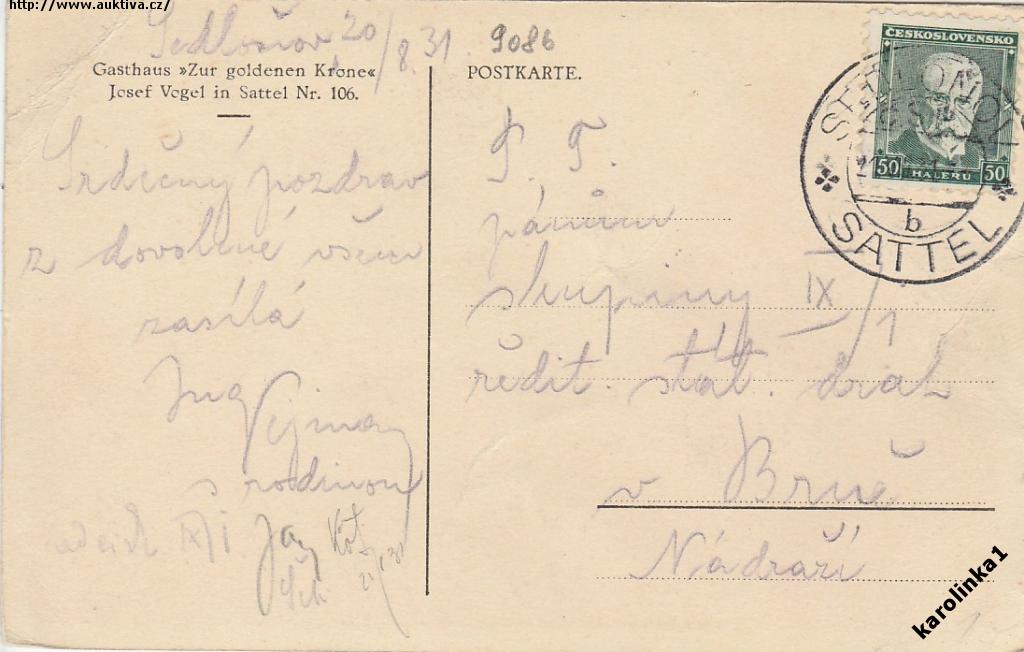 http://www.auktiva.cz/
Sedloňov 20/8.31
9086
Gasthaus »Zur goldenen Krone«
Josef Vogel in Sattel Nr. 106.
Srdečný pozdrav
z dovolené všem
zasílá
Ing
s rodinou
IX/1
POSTKARTE.
P. T.
pánům
skupiny IX/1
ředit. stát. drah
v Brně
Nádraží
ČESKOSLOVENSKO
50 HALÉŘŮ 50
SEDLOŇOV
b
SATTEL
karolinka1